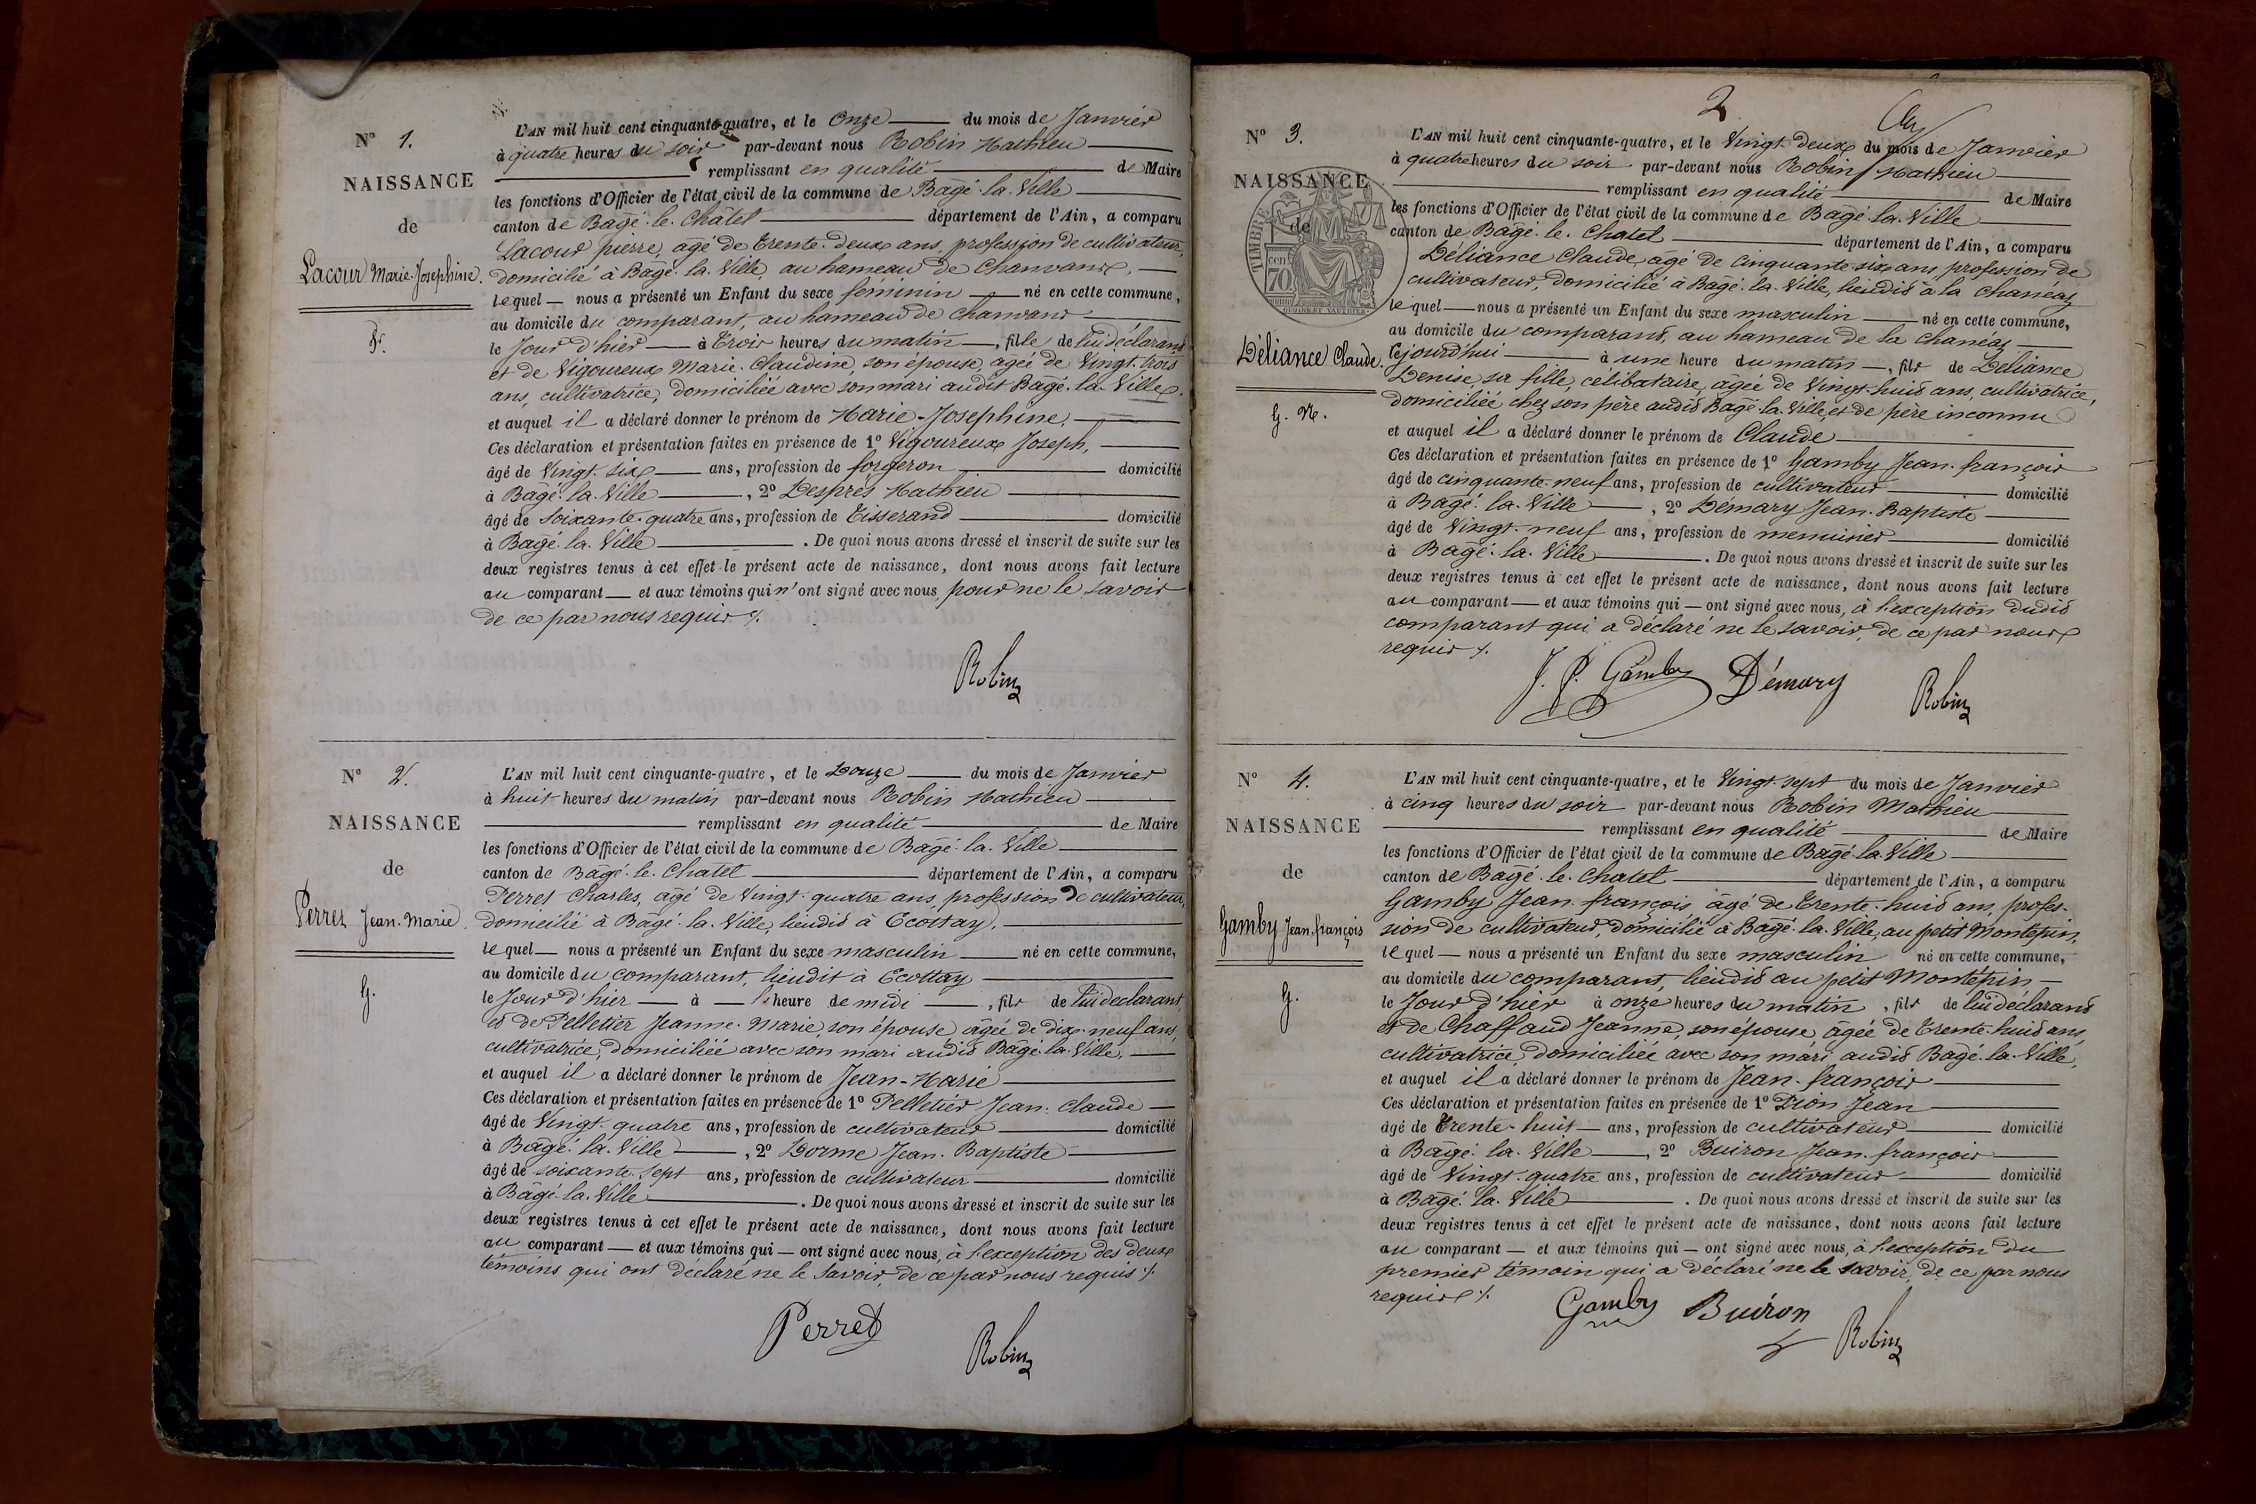 N° 1.
NAISSANCE
de
Lacour Marie-Josephine.
L'AN mil huit cent cinquante-quatre, et le Onze du mois de Janvier
à quatre heures du soir par-devant nous Robin Mathieu
remplissant en qualité de Maire
les fonctions d'Officier de l'état civil de la commune de Bagé-la-Ville
canton de Bagé-le-Châtel département de l'Ain, a comparu
Lacour pierre, agé de trente-deux ans, profession de cultivateur,
domicilié à Bagé-la-Ville, au hameau de Chanvans,
lequel nous a présenté un Enfant du sexe feminin né en cette commune,
au domicile du comparant, au hameau de Chanvans
le Jour d'hier à trois heures du matin, fille de lui déclarant
et de Vigoureux Marie-Claudine, son épouse, agée de Vingt-trois
ans, cultivatrice, domiciliée avec son mari audit Bagé-la-Ville.
et auquel il a déclaré donner le prénom de Marie-Josephine.
Ces déclaration et présentation faites en présence de 1° Vigoureux Joseph,
âgé de Vingt-six ans, profession de forgeron domicilié
à Bagé-la-Ville, 2° Desprès Mathieu
âgé de soixante-quatre ans, profession de Tisserand domicilié
à Bagé-la-Ville. De quoi nous avons dressé et inscrit de suite sur les
deux registres tenus à cet effet le présent acte de naissance, dont nous avons fait lecture
au comparant et aux témoins qui n'ont signé avec nous pour ne le savoir
de ce par nous requis ./.
Robin
N° 2.
NAISSANCE
de
Perret Jean-Marie.
G.
L'AN mil huit cent cinquante-quatre, et le Douze du mois de Janvier
à huit heures du matin par-devant nous Robin Mathieu
remplissant en qualité de Maire
les fonctions d'Officier de l'état civil de la commune de Bagé-la-Ville
canton de Bagé-le-Chatel département de l'Ain, a comparu
Perret Charles, agé de Vingt-quatre ans, profession de cultivateur,
domicilié à Bagé-la-Ville, lieudit à Ecottay,
lequel nous a présenté un Enfant du sexe masculin né en cette commune,
au domicile du comparant, lieudit à Ecottay
le Jour d'hier à l'heure de midi, fils de lui déclarant,
et de Pelletier Jeanne-Marie, son épouse, âgée de dix-neuf ans,
cultivatrice, domiciliée avec son mari audit Bagé-la-Ville,
et auquel il a déclaré donner le prénom de Jean-Marie
Ces déclaration et présentation faites en présence de 1° Pelletier Jean-Claude
âgé de Vingt-quatre ans, profession de cultivateur domicilié
à Bagé-la-Ville, 2° Dorme Jean-Baptiste
âgé de soixante-sept ans, profession de cultivateur domicilié
à Bagé-la-Ville. De quoi nous avons dressé et inscrit de suite sur les
deux registres tenus à cet effet le présent acte de naissance, dont nous avons fait lecture
au comparant et aux témoins qui ont signé avec nous, à l'exception des deux
témoins qui ont déclaré ne le savoir, de ce par nous requis ./.
Perret
Robin
2
N° 3.
NAISSANCE
de
TIMBRE
cent
70
Déliance Claude.
G. N.
L'AN mil huit cent cinquante-quatre, et le Vingt-deux du mois de Janvier
à quatre heures du soir par-devant nous Robin Mathieu
remplissant en qualité de Maire
les fonctions d'Officier de l'état civil de la commune de Bagé-la-Ville
canton de Bagé-le-Chatel département de l'Ain, a comparu
Déliance Claude, agé de cinquante-six ans, profession de
cultivateur, domicilié à Bagé-la-Ville, lieudit à la Chanéaz
lequel nous a présenté un Enfant du sexe masculin né en cette commune,
au domicile du comparant, au hameau de la Chanéaz
cejourd'hui à une heure du matin, fils de Déliance
Denise, sa fille, célibataire, âgée de Vingt-huit ans, cultivatrice,
domiciliée chez son père audit Bagé-la-Ville, et de père inconnu
et auquel il a déclaré donner le prénom de Claude
Ces déclaration et présentation faites en présence de 1° Gamby Jean-françois
âgé de cinquante-neuf ans, profession de cultivateur domicilié
à Bagé-la-Ville, 2° Démary Jean-Baptiste
âgé de Vingt-neuf ans, profession de menuisier domicilié
à Bagé-la-Ville. De quoi nous avons dressé et inscrit de suite sur les
deux registres tenus à cet effet le présent acte de naissance, dont nous avons fait lecture
au comparant et aux témoins qui ont signé avec nous, à l'exception dudit
comparant qui a déclaré ne le savoir, de ce par nous
requis ./.
J. f. Gamby Démary Robin
N° 4.
NAISSANCE
de
Gamby Jean-françois
G.
L'AN mil huit cent cinquante-quatre, et le Vingt-sept du mois de Janvier
à cinq heures du soir par-devant nous Robin Mathieu
remplissant en qualité de Maire
les fonctions d'Officier de l'état civil de la commune de Bagé-la-Ville
canton de Bagé-le-Chatel département de l'Ain, a comparu
Gamby Jean-françois âgé de trente-huit ans, profes-
sion de cultivateur, domicilié à Bagé-la-Ville, au petit Montépin,
lequel nous a présenté un Enfant du sexe masculin né en cette commune,
au domicile du comparant, lieudit au petit Montépin
le Jour d'hier à onze heures du matin, fils de lui déclarant
et de Chaffaud Jeanne, son épouse, âgée de trente-huit ans,
cultivatrice, domiciliée avec son mari audit Bagé-la-Ville,
et auquel il a déclaré donner le prénom de Jean-françois
Ces déclaration et présentation faites en présence de 1° Dion Jean
âgé de trente-huit ans, profession de cultivateur domicilié
à Bagé-la-Ville, 2° Buiron Jean-françois
âgé de Vingt-quatre ans, profession de cultivateur domicilié
à Bagé-la-Ville. De quoi nous avons dressé et inscrit de suite sur les
deux registres tenus à cet effet le présent acte de naissance, dont nous avons fait lecture
au comparant et aux témoins qui ont signé avec nous, à l'exception du
premier témoin qui a déclaré ne le savoir, de ce par nous
requis ./.
Gamby Buiron
Robin